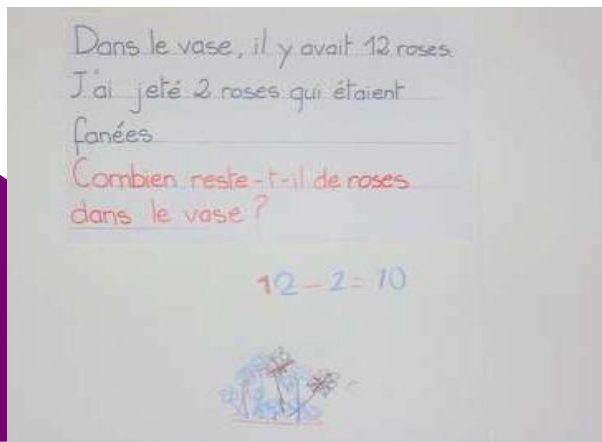 Dans le vase, il y avait 12 roses.
J'ai jeté 2 roses qui étaient
fanées.
Combien reste-t-il de roses
dans le vase ?
12 - 2 = 10